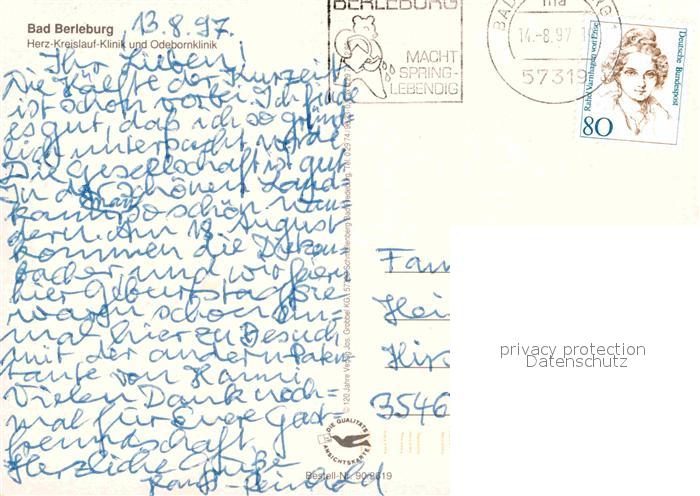 13.8.97.
Bad Berleburg
Herz-Kreislauf-Klinik und Odebornklinik
Ihr Lieben!
Die Hälfte der Kurzeit
ist schon vorbei. Ich finde
es gut, daß ich so gründ-
lich untersucht werde.
Die Gesellschaft ist gut.
In der schönen Land
kann man so schön wan
dern. Am 18. August
kommen die
bacher, und wir feiern
hier Geburtstag. Sie
waren schon ein-
mal hier zu Besuch
mit der andern Paten
tante von Hanni.
Vielen Dank noch-
mal für Eure Gast-
freundschaft
Herzliche Grüße
BERLEBURG
MACHT
SPRING-
LEBENDIG
BAD
14.-8.97
57319
Rahel Varnhagen von Ense
Deutsche Bundespost
80
Fam
Hei
Hir
3546
privacy protection
Datenschutz
DIE QUALITÄTS
ANSICHTSKARTE
Bestell-Nr. 90 8619